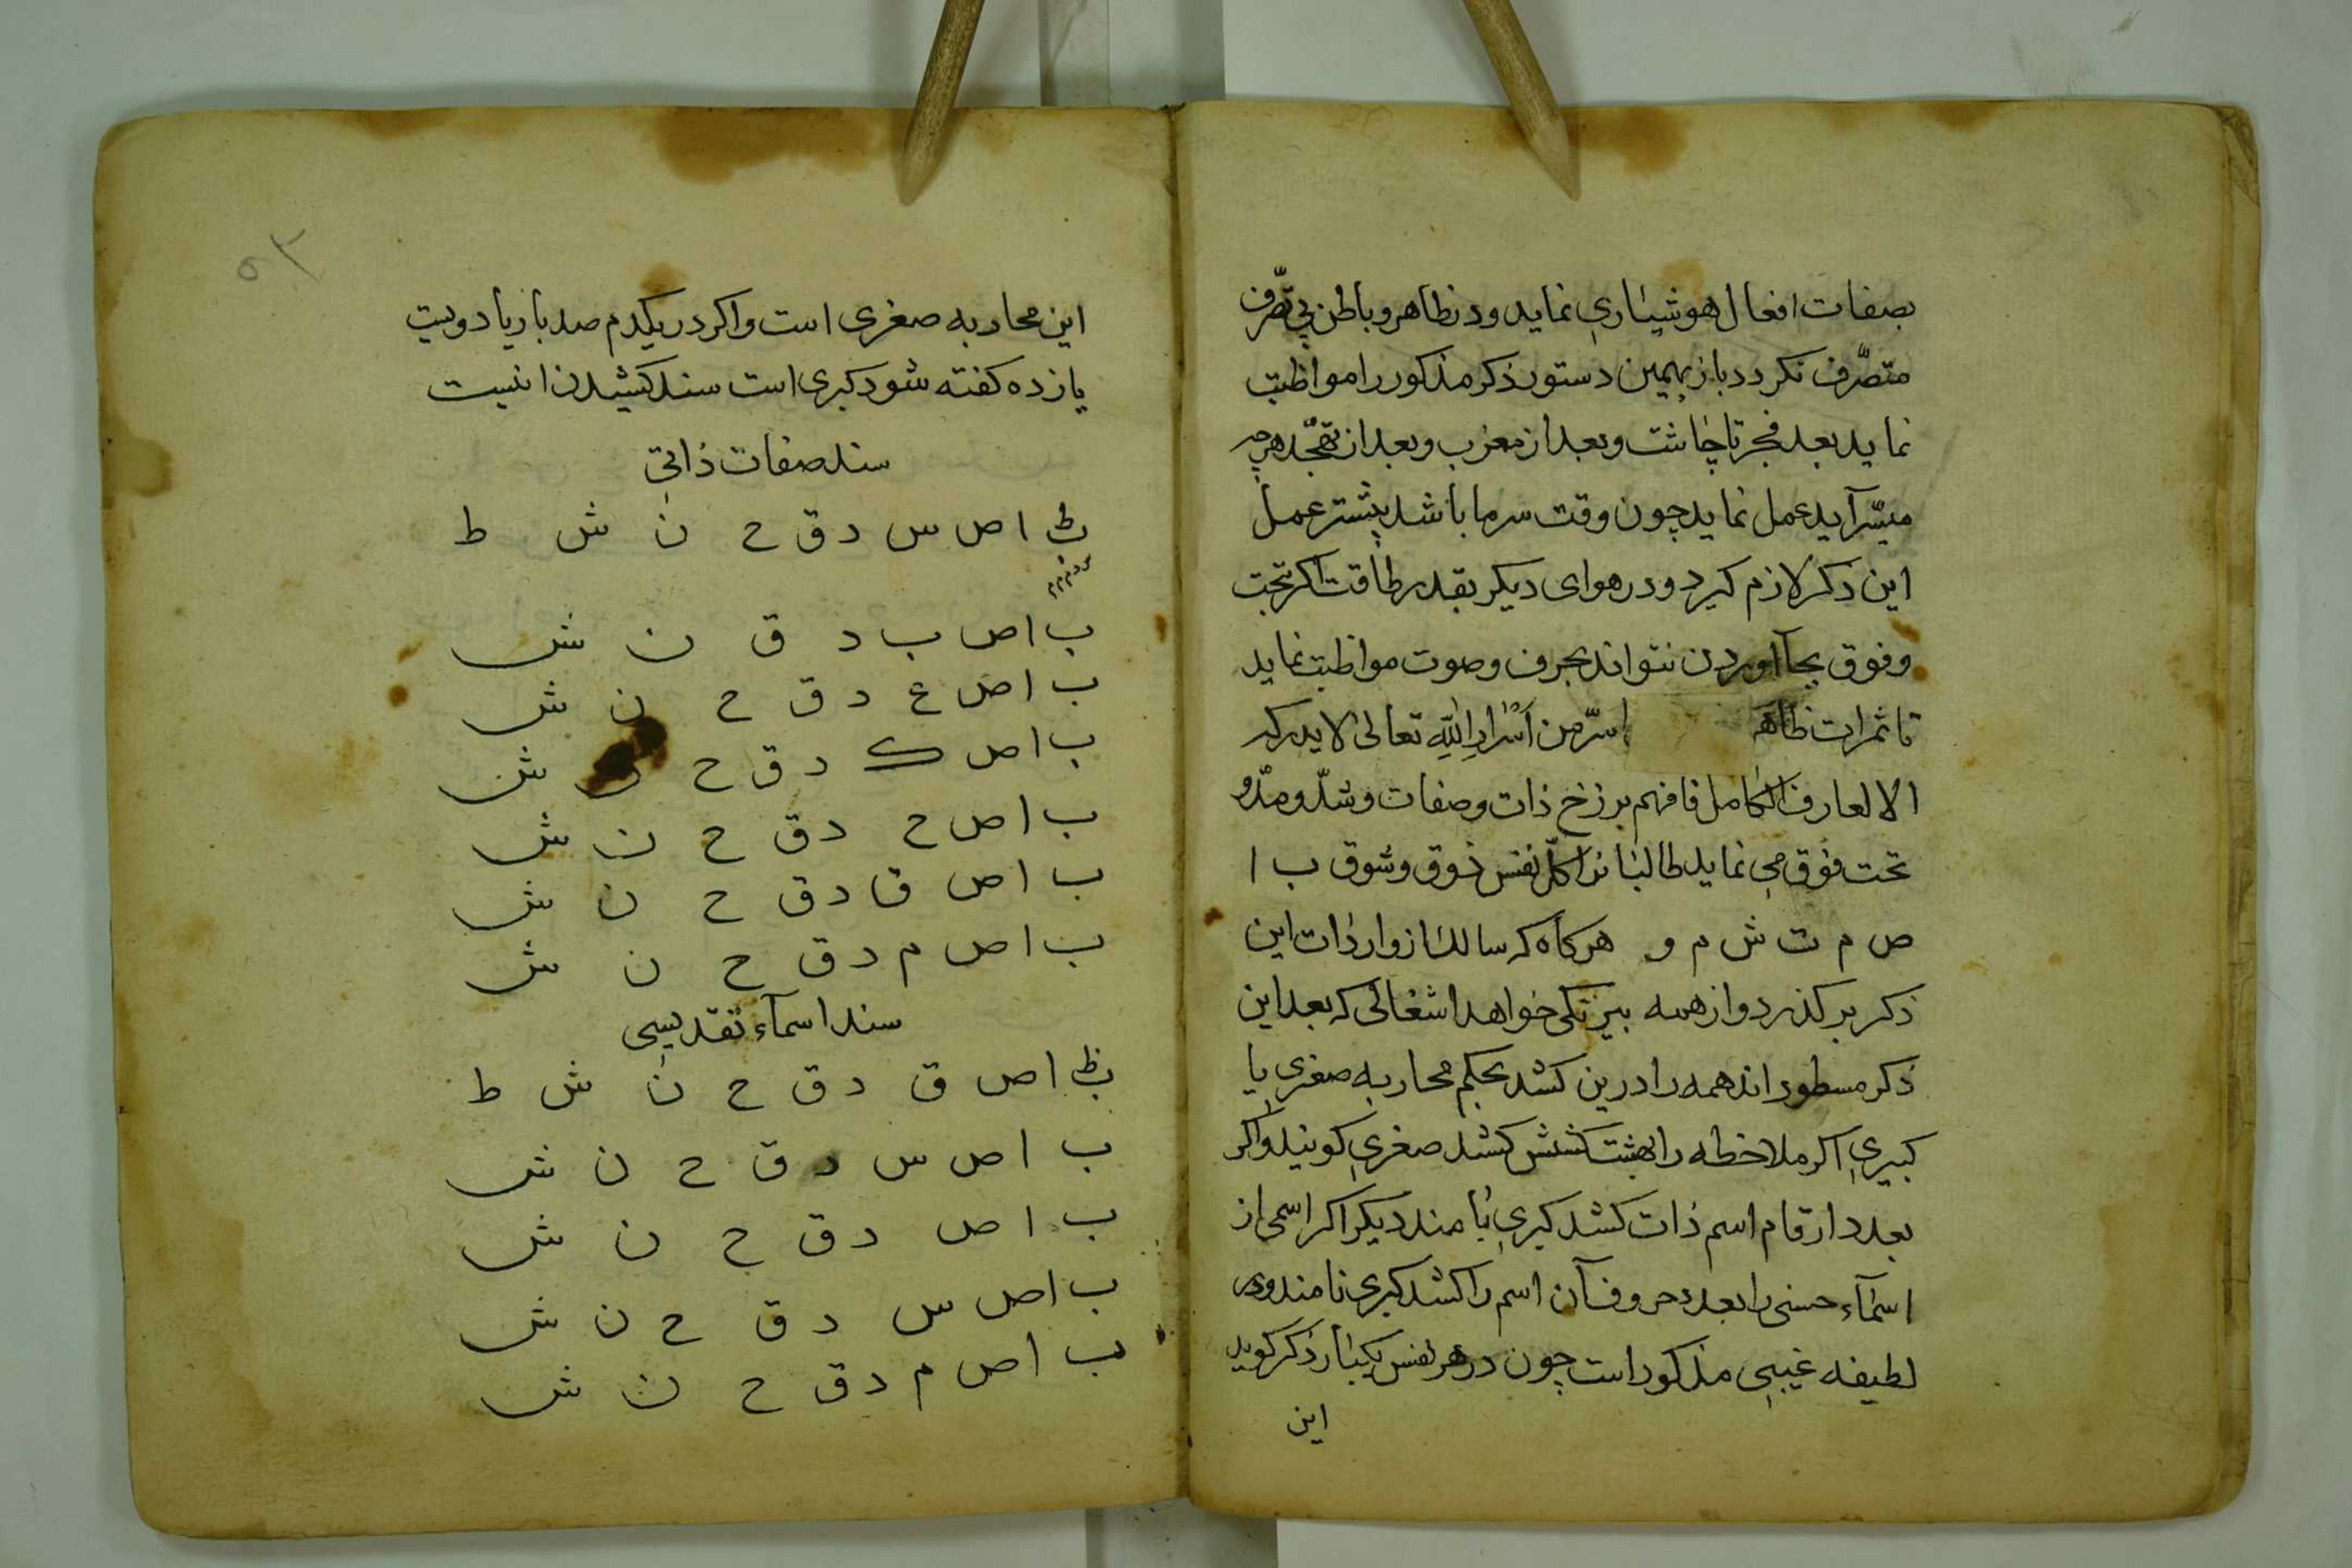 بصفات افعال هوشیاری نماید و در ظاهر و باطن بی تصّرف
متصّرف نکردد باز بهمین دستور ذکر مذکور را مواظبت
نماید بعد فجر تا چاشت و بعد از مغرب و بعد از تهجّد هرچه
میسّر آید عمل نماید چون وقت سرما باشد بیشتر عمل
این ذکر لازم کیرد و در هوای دیکر بقدر طاقت اکر تحت
و فوق بجا آوردن نتواند بحرف و صوت مواظبت نماید
تا ثمرات ظاهر سرّ من اسرار الله تعالی لا یدرکه
الا العارف الکامل فافهم برزخ ذات و صفات و شدّ و مدّ و
تحت فوق می نماید طالبانرا کلّ نفس ذوق و شوق ب ا
ص م ت ش م و هرکاه که سالک از واردات این
ذکر بر کذرد و از همه بیرنکی خواهد اشغالی که بعد این
ذکر مسطور اند همه را درین کشد بحکم محاربه صغری یا
کبیری اکر ملاخظه را بهشت کشش کشد صغری کویند و اکر
بعدد ارقام اسم ذات کشد کبری نامند دیکر اکر اسمی از
اسمآء حسنی را بعدد حروف آن اسم را کشد کبری نامند و در
لطیفه غیبی مذکور است چون در هر نفس یکبار ذکر کوید
این
۵۳
این محاربه صغری است و اکر در یکدم صد بار یا دویست
یازده کفته شود کبری است سند کشیدن اینست
سند صفات ذاتی
ط ب ا ص س د ق ح ن ش ط
ب ا ص ب د ق ن ش
ب ا ص ع د ق ح ن ش
ب ا ص ک د ق ح ن ش
ب ا ص ح د ق ح ن ش
ب ا ص ق د ق ح ن ش
ب ا ص م د ق ح ن ش
سند اسمآء تقدیسی
ظ ب ا ص ق د ق ح ن ش ط
ب ا ص س د ق ح ن ش
ب ا ص د ق ح ن ش
ب ا ص س د ق ح ن ش
ب ا ص م د ق ح ن ش